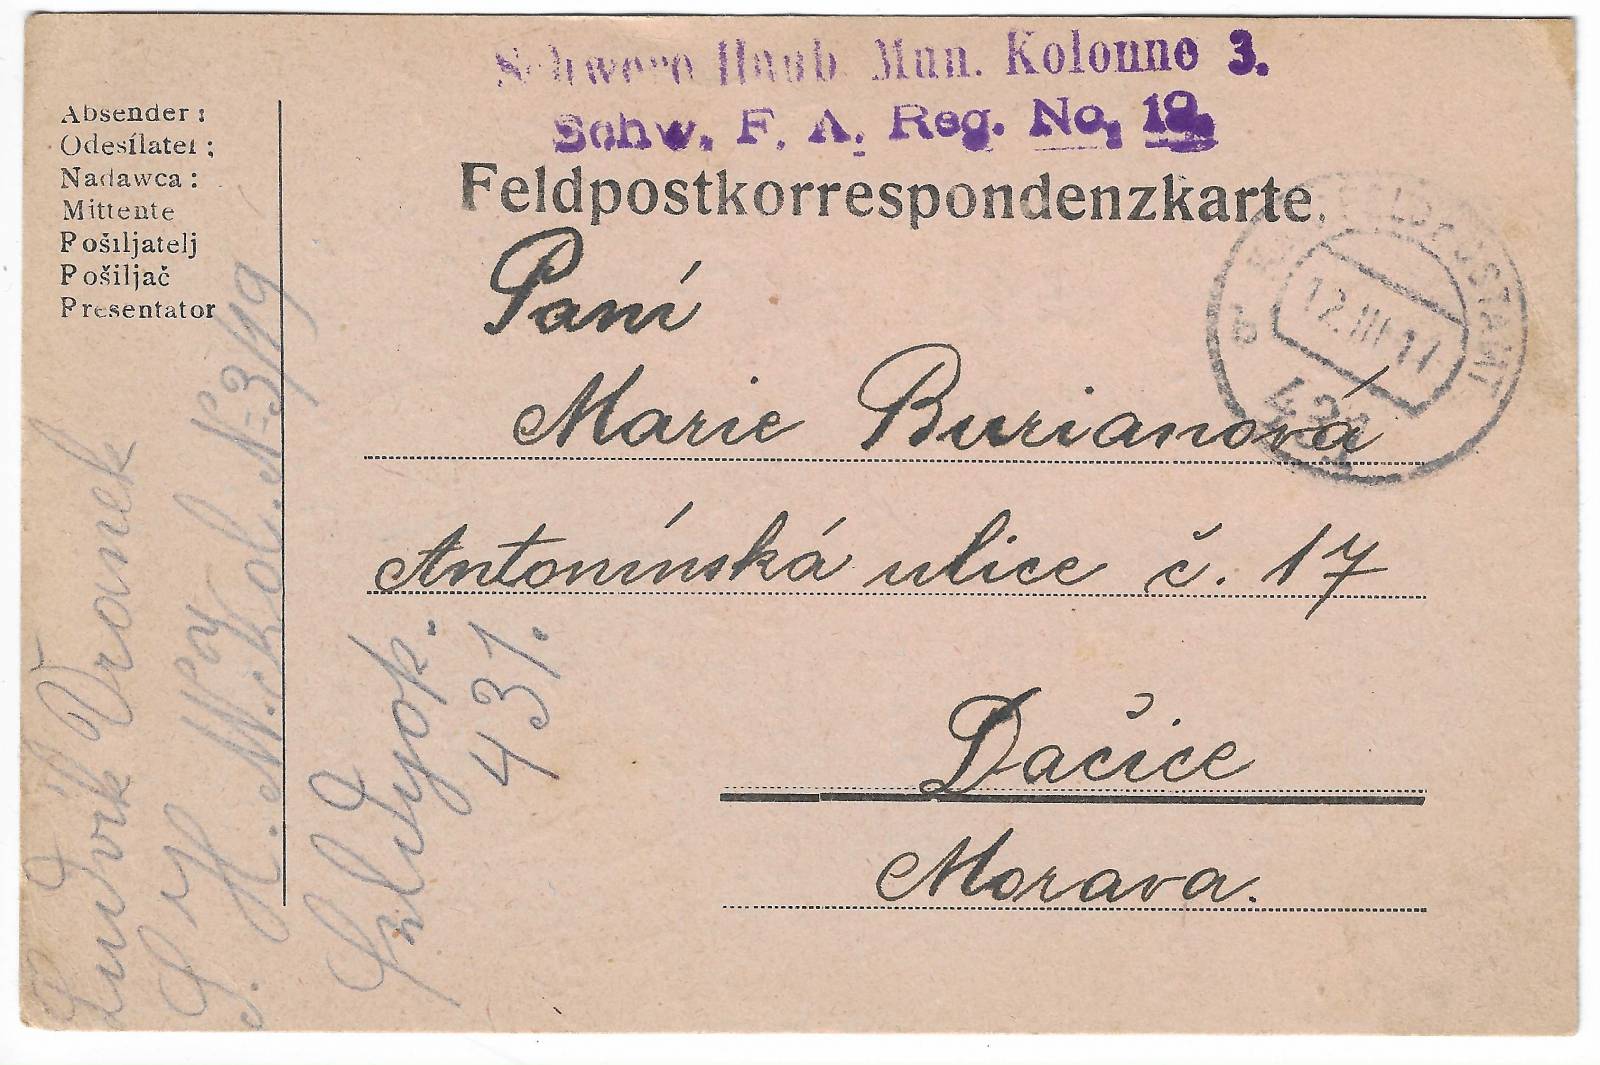 Schwere Haub. Mun. Kolonne 3.
Schw. F. A. Reg. No. 19.
Feldpostkorrespondenzkarte.
Absender:
Odesílatel:
Nadawca:
Mittente
Pošiljatelj
Pošiljač
Presentator
FELDPOSTAMT
12.III.17
431
Paní
Marie Burianová
Antonínská ulice č. 17
Dačice
Morava.
Ludvík Vranek
S. H. M. Kol. N 3/19
Feldpok.
431.